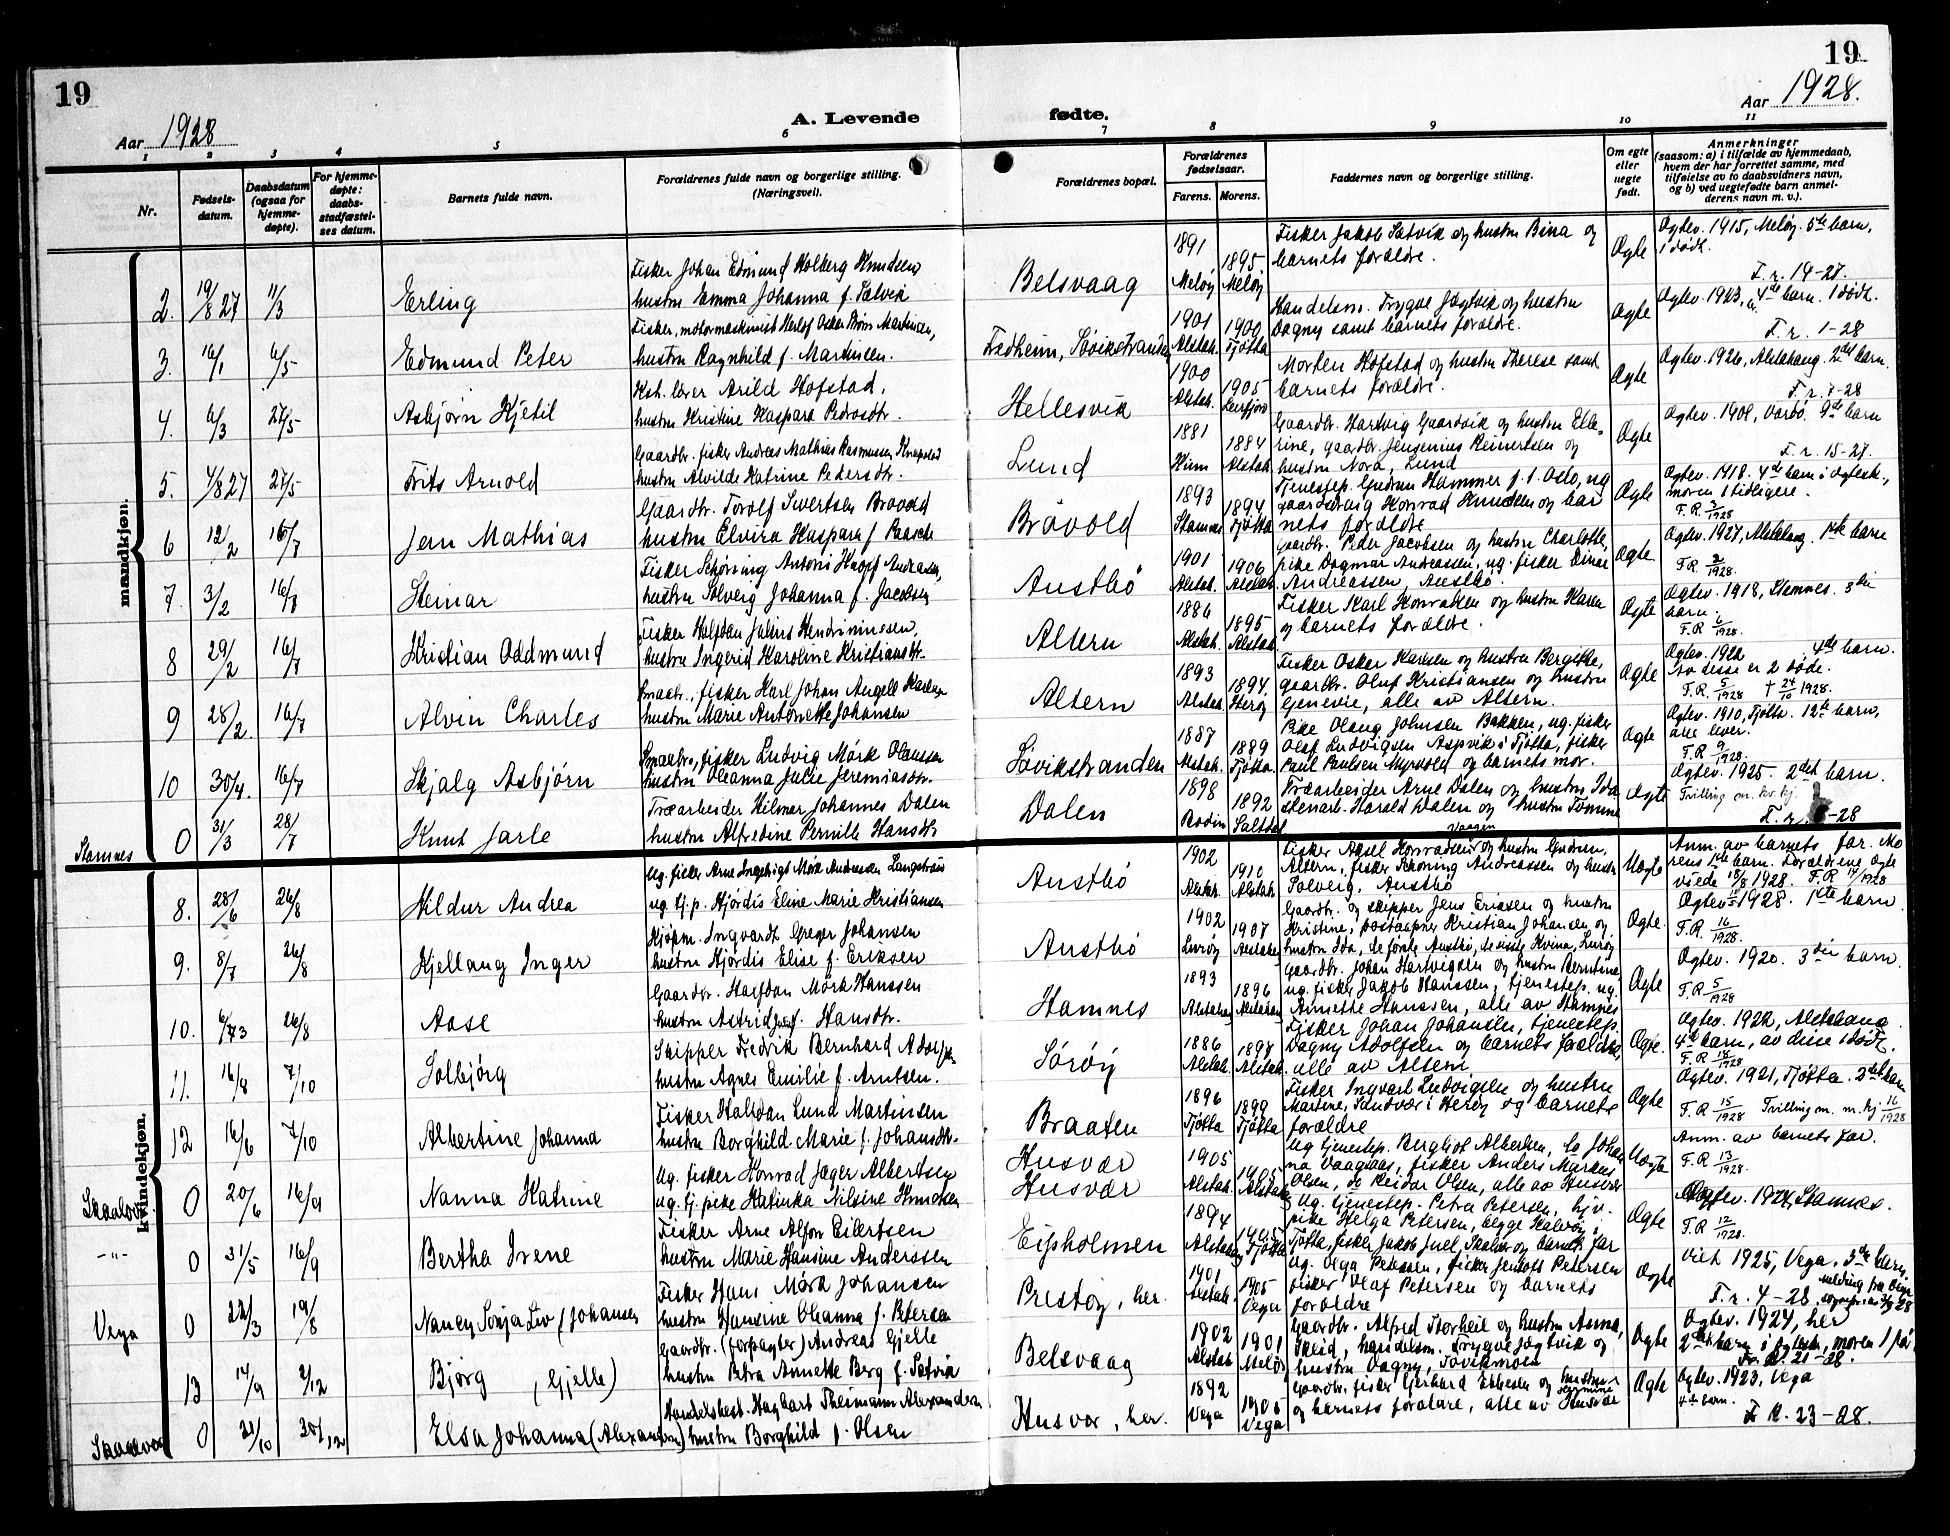 19
19
Aar 1928
A. Levende
fødte.
Aar 1928.
1 2 3 4 5 6 7 8 9 10 11
Nr.
Fødsels-
datum.
Daabsdatum
(ogsaa for
hjemme-
døpte).
For hjemme-
døpte:
daabs-
stadfæstel-
ses datum.
Barnets fulde navn.
Forældrenes fulde navn og borgerlige stilling.
(Næringsvei).
Forældrenes bopæl.
Forældrenes
fødselsaar.
Farens. Morens.
Faddernes navn og borgerlige stilling.
Om egte
eller
uegte
født.
Anmerkninger
(saasom: a) i tilfælde av hjemmedaab,
hvem der har forrettet samme, med
tilføielse av to daabsvidners navn,
og b) ved uegtefødte barn anmel-
derens navn m. v.).
mandkjøn.
2. 19/8 27 11/3 Erling
Fisker Johan Edmund Holberg Knudsen
hustru Emma Johanna f. Sætvik
Belsvaag
1891 Meløy 1895 Meløy
Fisker Jakob Sætvik og hustru Bina og
barnets forældre.
Ægte
Ægtev. 1915, Meløy. 5te barn,
1 død.
F. r. 14-27.
3. 16/1 6/5 Edmund Peter
hustru Ragnhild f. Martinsen.
Fredheim, Søvikstranden
1901 Alstah. 1900 Tjøtta
Handelsm. Trygve Jægtvik og hustru
Dagny samt barnets forældre.
Ægte
Ægtev. 1923, 4de barn. 1 død.
F. r. 1-28
4. 6/3 27/5 Asbjørn Kjetil
Kst. lærer Arild Hofstad,
hustru Kristine Kaspara Pedersdtr.
Hellesvik
1900 Alstah. 1905 Leirfjord
Morten Hofstad og hustru Therese samt
barnets forældre.
Ægte
Ægtev. 1926, Alstahaug. 2det barn.
F. r. 7-28
5. 4/8 27 27/5 Frits Arnold
Gaardbr. fisker Andreas Mathias Rasmussen
hustru Alvilde Katrine Pedersdtr.
Lund
1881 1884 Alstah.
Gaardbr. Hartvig Gaardsvik og hustru Elle-
rine, gaardbr. Jensenius Reinertsen og
hustru Nora, Lund
Ægte
Ægtev. 1908, 9de barn
F. r. 15-27.
6 12/2 16/7 Jan Mathias
Gaardbr. Torolf Sivertsen Brøvold
hustru Elvira Kaspara f. Paasche
Brøvold
1893 Stamnes 1894 Tjøtta
Tjenestep. Gudrun Hammer f. t. Oslo, ug.
gaardsdreng Konrad Knudsen og bar
nets forældre
Ægte
Ægtev. 1918. 4de barn i ægtesk.,
moren 1 tidligere.
F. R. 3/1928
7. 3/2 16/7 Steinar
hustru Solveig Johanna f. Jacobsen
Austbø
1901 Alstah. 1906 Alstah.
Gaardbr. Peder Jacobsen og hustru Charlotte,
pike Dagmar Andreassen, ug. fisker Einar
Andreassen, Austbø.
Ægte
Ægtev. 1927, Alstahaug. 1ste barn
F. R. 2/1928.
8 29/2 16/7 Kristian Oddmund
Fisker Halfdan Julius Hendrikssen,
hustru Ingerid Karoline Kristiansdtr.
Altern
1886 Alstah. 1895 Alstah.
Fisker Karl Konradsen og hustru Karen
og barnets forældre.
Ægte
Ægtev. 1918, Stamnes.
barn.
F. R. 6/1928.
9 28/2. 16/7 Alvin Charles
Smaabr., fisker Karl Johan Angell Karlsen
hustru Marie Antonette Johansen
Altern
1893 Alstah. 1894. Herøy
Fisker Oskar Karlsen og hustru Bergitte,
gaardbr. Oluf Kristiansen og hustru
Genevie, alle av Altern.
Ægte
Ægtev. 1922 4de barn.
Av disse er 2 døde.
F. R. 5/1928 † 24/10 1928.
10 30/4. 16/7 Skjalg Asbjørn
Smaabr., fisker Ludvig Mørk Olaussen
hustru Oleanna Julie Jeremiasdtr.
Søvikstranden
1887 Alstah. 1889 Tjøtta.
Pike Olaug Johnsen Bakken, ug. fisker
Olaf Ludvigsen Aspvik i Tjøtta, fisker
Paul Paulsen Myrvold og barnets mor.
Ægte
Ægtev. 1910, Tjøtta. 12te barn,
alle lever.
F. R. 9/1928.
Stamnes 0 31/3 28/7 Knut Jarle
Træarbeider Hilmar Johannes Dalen
hustru Alfredine Pernille Hansdtr
Dalen
1898 Bodin 1892 Saltdal
Træarbeider Arne Dalen og hustru Ida
stenarb. Harald Dalen og hustru Tomine
Vaagen
Ægte
Ægtev. 1925. 2det barn.
Tvilling m. kv. kj.
F. r. -28
kvindekjøn.
8. 28/6 26/8 Hildur Andrea
Ug. fisker Arne Ingebrigt Mørk Andreassen
ug. tj. p. Hjørdis Eline Marie Kristiansen
Austbø
1902 Alstah. 1910 Alstah.
Fisker Aksel Konradsen og hustru Gudrun,
Altern, fisker Schøning Andreassen og hustru
Solveig, Austbø
Uægte
Anm. av barnets far. Mo
rens 1ste barn. Forældrene ægte
viede 18/8 1928. F. R 14/1928
9. 8/7 26/8 Kjellaug Inger
Kjøpm. Ingvardt Greger Johansen
hustru Hjørdis Elise f. Eriksen
Austbø
1902 Lurøy 1907 Alstah.
Gaardbr. og skipper Jens Eriksen og hustru
Kristine, postaapner Kristian Johansen og
hustru Ida, de første Austbø, de sidste Kvina, Lurøy
Ægte.
Ægtev. 1928. 1ste barn
F. R. 16/1928.
10. 26/8 Aase
Gaardbr. Halfdan Mørk Hanssen
hustru Astrid f. Hansdtr.
Hamnes
1893 1896
Gaardbr. Johan Hartvigsen og hustru Berntine
ug. fisker Jakob Hanssen, tjenestep. ug.
Annette Hanssen, alle av Hamnes
Ægte
Ægtev. 1920. 3die barn.
F. R 5/1928
11. 16/8 7/10 Solbjørg
Skipper Fredrik Bernhard Adolfsen
hustru Agnes Emilie f. Arntsen.
Sørøy
1886 Alstah. Alstah.
Fisker Johan Johansen, tjenestep.
Dagny Adolfsen og barnets forældre,
alle av Altern
Ægte.
Ægtev. 1922, Alstahaug.
4de barn, av disse 1 død.
F. R 18/1928
12 16/6 7/10 Albertine Johanna
Fisker Halfdan Lund Martinsen
hustru Borghild Marie f. Johansdtr.
Braaten
1896 Tjøtta 1899 Tjøtta
Fisker Ingvart Ludvigsen og hustru
Martine, Sandvær i Herøy og barnets
forældre
Ægte
Ægtev. 1921, Tjøtta. barn
F. R 15/1928 Tvilling m. m. kj 16/1928
Skaalvær 0 20/6 16/9 Nanna Katrine
Ug. fisker Konrad Jæger Albertsen
ug. tj. pike Katinka Nilsine Knudsen
Husvær
Husvær
1905 Alstah. 1905 Alstah.
Ug. tjenestep. Bergliot Albertsen, do Johan
na Vaagsaas, fisker Anders Markus
Olsen, do Reidar Olsen, alle av Husvær
Uægte
Anm. av barnets far.
F. R 13/1928.
-"- 0 31/5 16/9 Bertha Irene
Fisker Arne Alfon Eilertsen
hustru Marie Hansine Anderssen
Eipholmen
1894 Alstah. 1905 Tjøtta
Ug. tjenestep. Petra Petersen, hjv.
pike Helga Petersen, begge Skalvær i
Tjøtta, fisker Jakob Juel, Skalvær og barnets far
Ægte
Ægtev. 1924, Stamnes.
F. R. 12/1928.
Vega 0 22/3 19/8 Nancy Sonja Liv (Johansen
Fisker Hans Mørk Johansen
hustru Hansine Oleanna f. Petersen
Prestøy, her.
1901 Alstah. 1905 Vega
Ug. Olga Petersen, fisker Petersen
fisker Olaf Petersen og barnets
forældre
Ægte
viet 1925, Vega, 3die barn.
melding fra Vega
F. r. 4-28
13 14/9 2/12 Bjørg (Gjelle)
Gaardbr. (forpagter) Andreas Gjelle
hustru Petra Annette Berg f. Sætvik
Belsvaag
1902 Alstah 1901 Meløy
Gaardbr. Alfred Storheil og hustru Anna,
Skeid, handelsm. Trygve Jægtvik og
hustru Dagny, Søvikmoen
Ægte
Ægtev. 1924, her
2det barn i ægtesk., moren 1 før
Fr. R. 21-28.
Skaalvær 0 31/10 Elsa Johanna (Alexandersen)
Handelsbest. Hagbart Theimann Alexandersen
hustru Borghild f. Olsen
Husvær, her.
1892 Vega Vega
Gaardbr. fisker Gerhard Ebbesen og hustru
og barnets forældre, alle av Husvær
Ægte
Ægtev. 1923, Vega
4de barn.
F. R. 23-28.